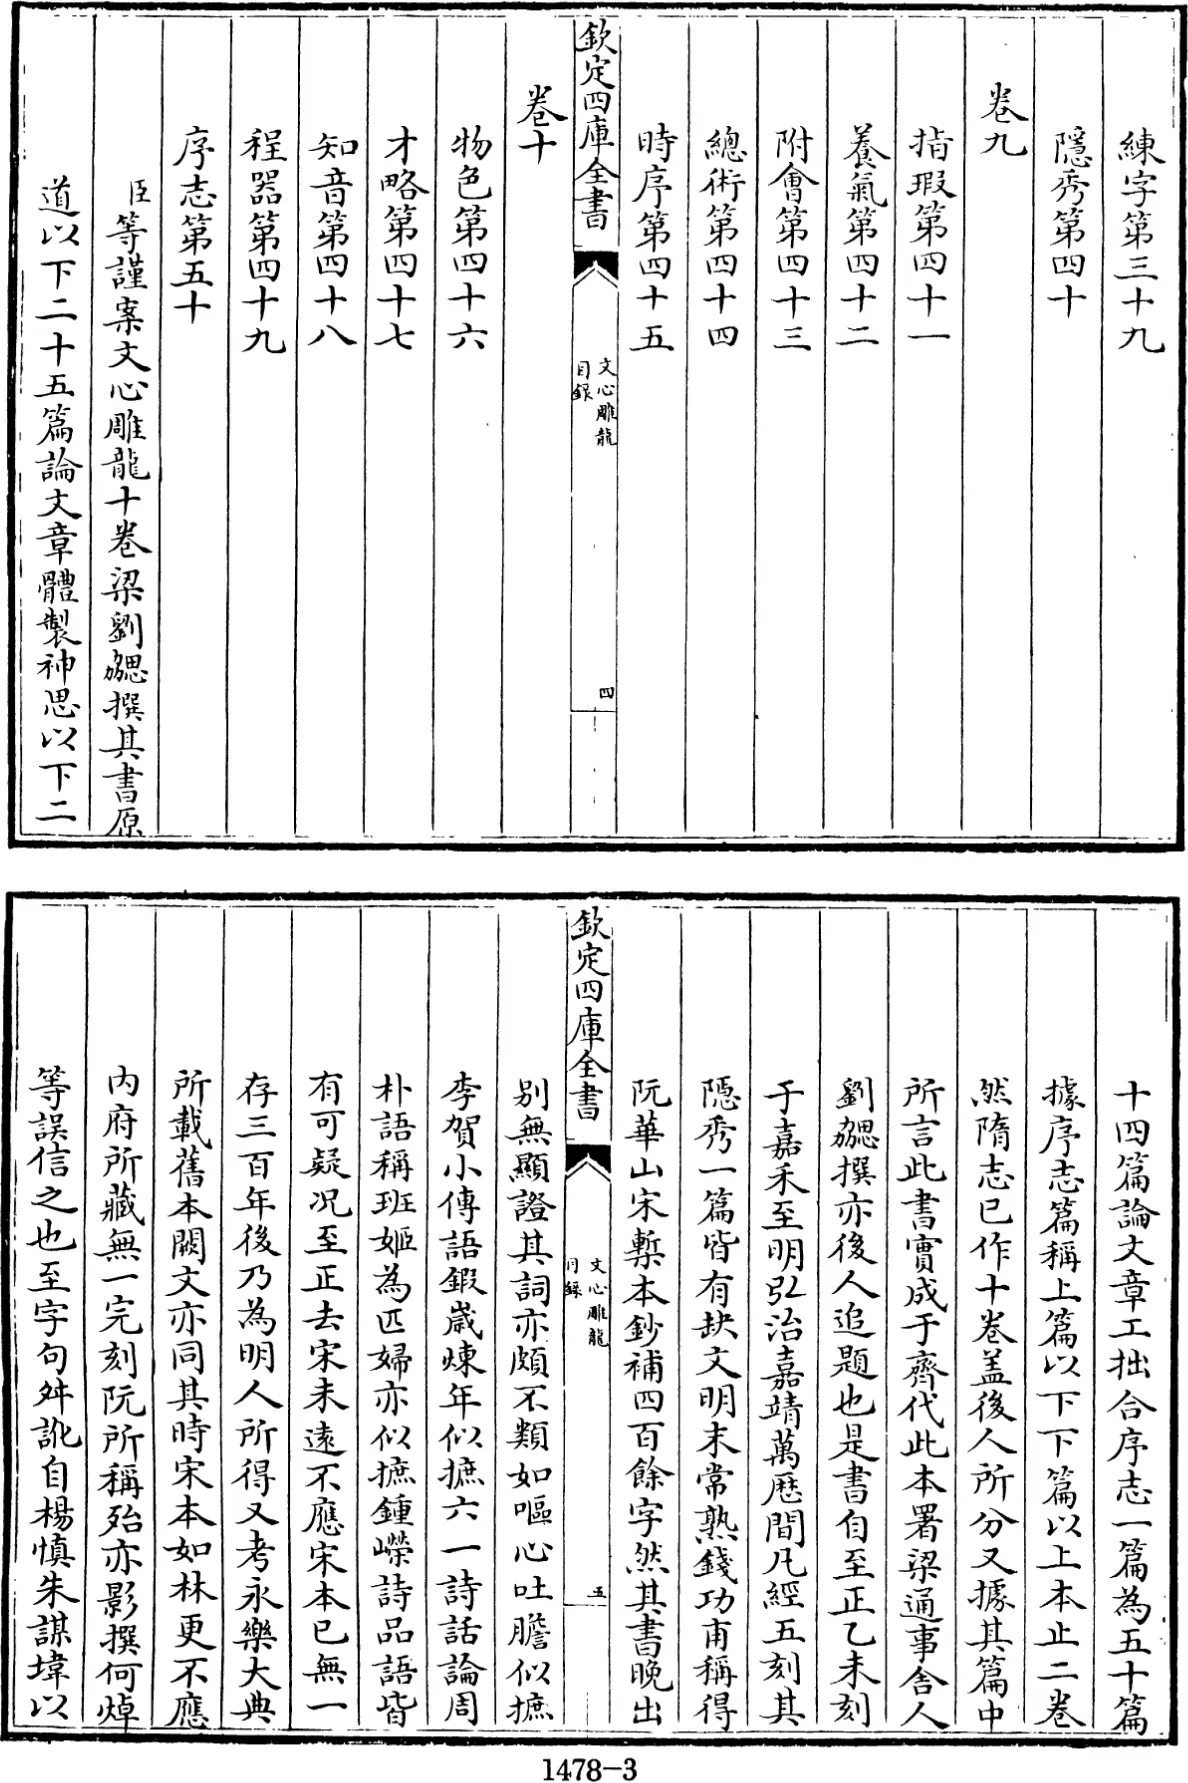 練字第三十九
隱秀第四十
卷九
指瑕第四十一
養氣第四十二
附會第四十三
總術第四十四
時序第四十五
欽定四庫全書
文心雕龍
目録
四
卷十
物色第四十六
才略第四十七
知音第四十八
程器第四十九
序志第五十
臣等謹案文心雕龍十卷梁劉勰撰其書原
道以下二十五篇論文章體製神思以下二
十四篇論文章工拙合序志一篇為五十篇
據序志篇稱上篇以下下篇以上本止二卷
然隋志已作十卷盖後人所分又據其篇中
所言此書實成于齊代此本署梁通事舍人
劉勰撰亦後人追題也是書自至正乙未刻
于嘉禾至明弘治嘉靖萬歴間凡經五刻其
隱秀一篇皆有缺文明末常熟錢功甫稱得
阮華山宋槧本鈔補四百餘字然其書晚出
欽定四庫全書
文心雕龍
目録
五
别無顯證其詞亦頗不類如嘔心吐膽似摭
李賀小傳語鍛歲煉年似摭六一詩話論周
朴語稱班姬為匹婦亦似摭鍾嶸詩品語皆
有可疑况至正去宋未遠不應宋本已無一
存三百年後乃為明人所得又考永樂大典
所載舊本闕文亦同其時宋本如林更不應
内府所藏無一完刻阮所稱殆亦影撰何焯
等誤信之也至字句舛訛自楊慎朱謀㙔以
1478-3